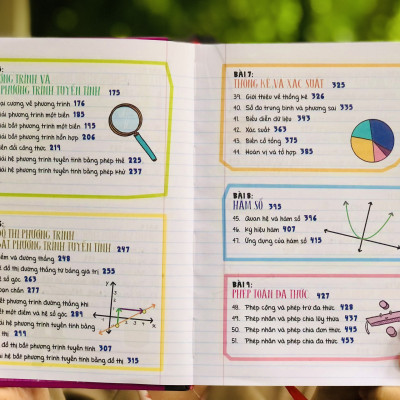 ƠNG TRÌNH VÀ
PHƯƠNG TRÌNH TUYẾN TÍNH 175
ại cương về phương trình 176
iải phương trình một biến 185
iải bất phương trình một biến 195
iải bất phương trình hỗn hợp 206
iến đổi công thức 219
iải hệ phương trình tuyến tính bằng phép thế 225
iải hệ phương trình tuyến tính bằng phép khử 237
Ồ THỊ PHƯƠNG TRÌNH
BẤT PHƯƠNG TRÌNH TUYẾN TÍNH 247
iểm và đường thẳng 248
ẽ đồ thị đường thẳng từ bảng giá trị 255
ệ số góc 263
oạn chắn 277
iết phương trình đường thẳng khi
iết một điểm và hệ số góc 284
iải hệ phương trình tuyến tính bằng
thị 299
đồ thị bất phương trình tuyến tính 307
iải hệ bất phương trình tuyến tính bằng đồ thị 315
y
x
BÀI 7:
THỐNG KÊ VÀ XÁC SUẤT 325
39. Giới thiệu về thống kê 326
40. Số đo trung bình và phương sai 335
41. Biểu diễn dữ liệu 343
42. Xác suất 363
43. Biến cố tổng 375
44. Hoán vị và tổ hợp 385
BÀI 8:
HÀM SỐ 395
45. Quan hệ và hàm số 396
46. Ký hiệu hàm 407
47. Ứng dụng của hàm số 415
BÀI 9:
PHÉP TOÁN ĐA THỨC 427
48. Phép cộng và phép trừ đa thức 428
49. Phép nhân và phép chia lũy thừa 437
50. Phép nhân và phép chia đơn thức 445
51. Phép nhân và phép chia đa thức 453